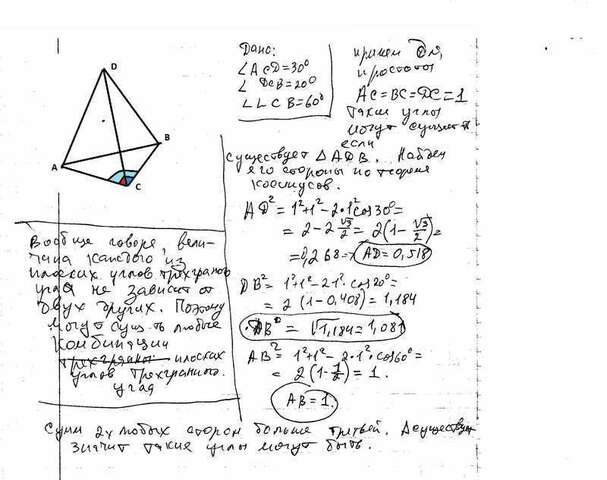 D
A
B
C
Дано:
∠ACD=30°
∠DCB=20°
∠LCB=60°
примем для
простоты
AC=BC=DC=1
Такие углы
могут существ.
если
существует △ADB. Найдем
его стороны по теореме
косинусов.
AD²=1²+1²-2·1²cos30°=
=2-2√3/2=2(1-√3/2)=
=0,268→AD=0,518
DB²=1²+1²-2·1²·cos20°=
=2(1-0,408)=1,184
DB=√1,184=1,081
AB²=1²+1²-2·1²·cos60°=
=2(1-1/2)=1.
AB=1.
Вообще говоря, вели-
чина каждого из
плоских углов трехгранного
угла не зависит от
двух других. Поэтому
могут сущ-ть любые
комбинации
плоских
углов трехгранного
угла
Сумм 2х любых сторон больше третьей. △существует
значит такие углы могут быть.